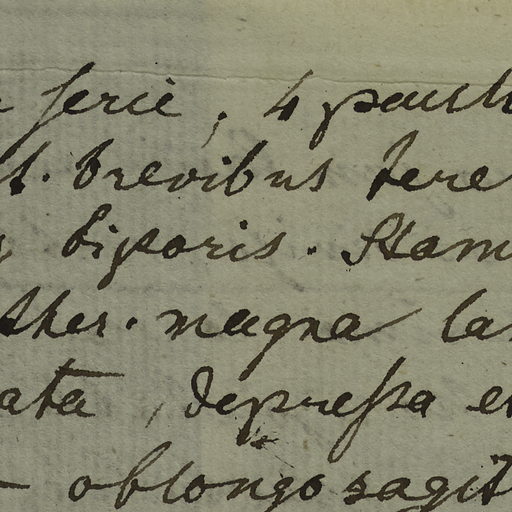 serie, 4 paust
t. brevibus tere
biporis. Stam
ther. magna la
ata, depressa e
- oblongo sagit